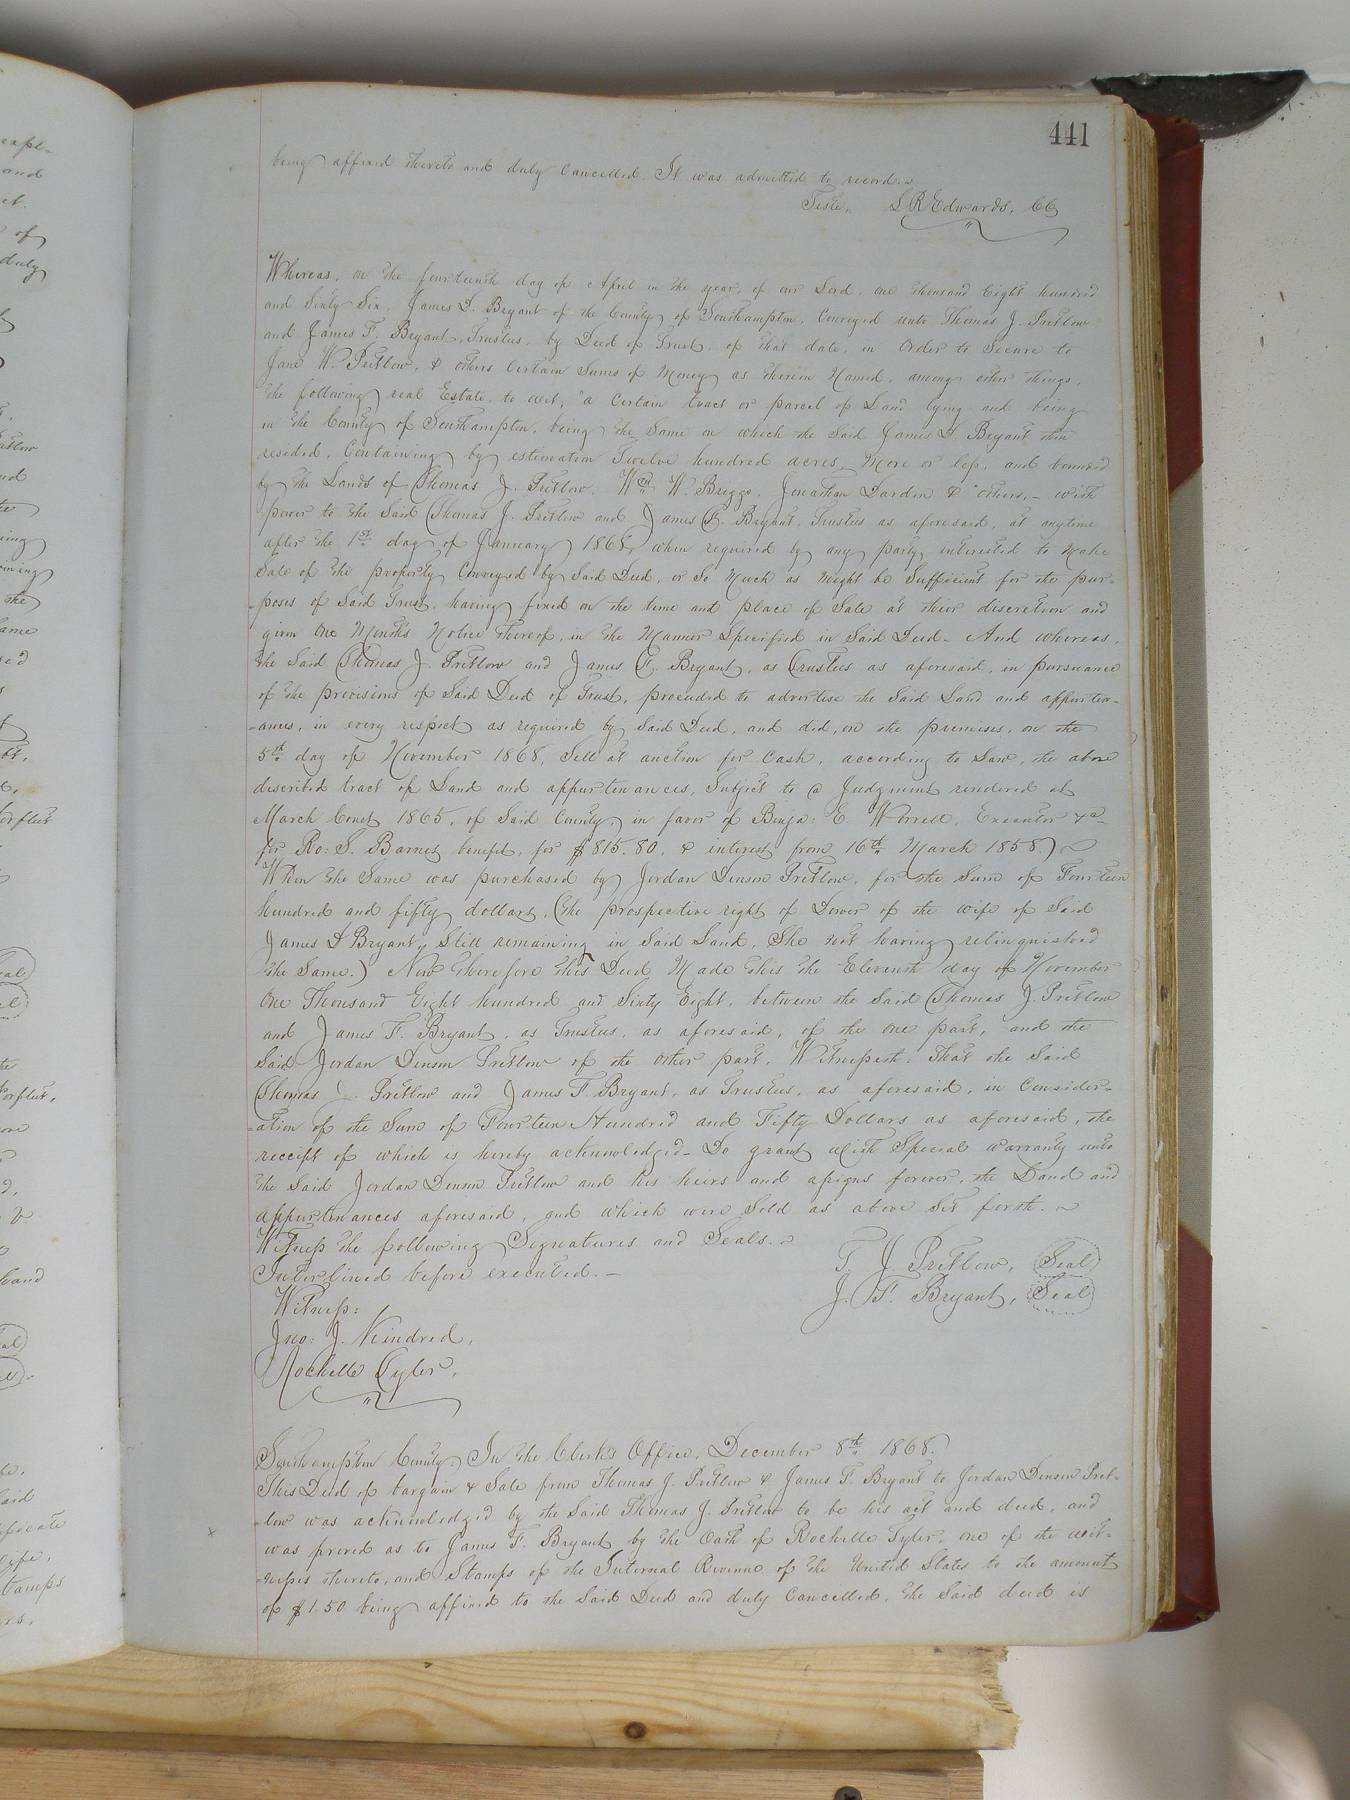 441
being affixed thereto and duly cancelled. It was admitted to record.
Teste, L R Edwards, CC
Whereas, on the fourteenth day of April in the year, of our Lord, one thousand Eight hundred
and Sixty Six, James D. Bryant of the County of Southampton, Conveyed unto Thomas J. Pretlow
and James F. Bryant, Trustees, by Deed of Trust, of that date, in Order to Secure to
Jane W. Pretlow, & others Certain Sums of Money as therein Named, among other things,
the following real Estate, to wit; "a Certain tract or parcel of Land lying and being
in the County of Southampton, being the Same on which the Said James D. Bryant then
resided, Containing by estimation Twelve hundred acres, More or less, and bounded
by the Lands of Thomas J. Pretlow, Wm W. Briggs, Jonathan Darden & "others, - with
power to the Said Thomas J. Pretlow and James F. Bryant, Trustees as aforesaid, at anytime
after the 1st day of January 1868, when required by any party interested to Make
Sale of the property Conveyed by Said Deed, or So Much as Might be Sufficient for the pur-
-poses of Said Trust, having fixed on the time and place of Sale at their discretion and
given One Month's Notice thereof, in the Manner Specified in Said Deed - And whereas,
the Said Thomas J. Pretlow and James F. Bryant, as Trustees as aforesaid, in pursuance
of the provisions of Said Deed of Trust, proceeded to advertise the Said Land and appurten-
-ances, in every respect as required by Said Deed, and did, on the premises, on the
5th day of November 1868, Sell at auction for Cash, according to Law, the above
described tract of Land and appurtenances, Subject to a Judgment rendered at
March Court 1865, of Said County, in favor of Benja: E. Worrell, Executor &c
for Ro: S. Barnes benefit, for $815.80, & interest from 16th March 1858.)
When the Same was purchased by Jordan Denson Pretlow, for the Sum of Fourteen
hundred and fifty dollars, (the prospective right of Dower of the wife of Said
James D Bryant, Still remaining in Said Land, She not having relinquished
the Same.) Now therefore this Deed Made this the Eleventh day of November
One Thousand Eight hundred and Sixty Eight, between the Said Thomas J. Pretlow
and James F. Bryant, as Trustees, as aforesaid, of the one part, and the
Said Jordan Denson Pretlow of the other part, Witnesseth: That the Said
Thomas J. Pretlow and James F. Bryant, as Trustees, as aforesaid, in Consider-
-ation of the Sum of Fourteen Hundred and Fifty Dollars as aforesaid, the
receipt of which is hereby acknowledged - Do grant with Special warranty unto
the Said Jordan Denson Pretlow and his heirs and assigns forever, the Land and
appurtenances aforesaid, and which were Sold as above Set forth.
Witness the following Signatures and Seals.
Interlined before executed. -
T. J. Pretlow, Seal
J. F. Bryant, Seal
Witness:
Jno: J. Kindred,
Rochelle Tyler,
Southampton County, In the Clerk's Office, December 8th 1868.
This Deed of bargain & Sale from Thomas J. Pretlow & James F. Bryant to Jordan Denson Pret-
-low was acknowledged by the Said Thomas J. Pretlow to be his act and deed, and
was proved as to James F. Bryant by the Oath of Rochelle Tyler, one of the wit-
-nesses thereto, and Stamps of the Internal Revenue of the United States to the amount
of $1.50 being affixed to the Said Deed and duly Cancelled, the Said deed is